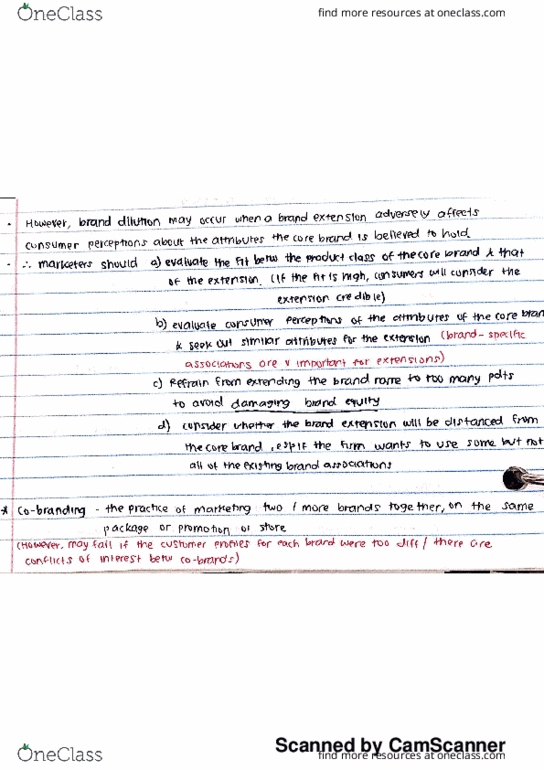 OneClass
find more resources at oneclass.com
• However, brand dilution may occur when a brand extension adversely affects
consumer perceptions about the attributes the core brand is believed to hold
• ∴ marketers should a) evaluate the fit betw the product class of the core brand & that
of the extension. (If the fit is high, consumers will consider the
extension credible)
b) evaluate consumer perceptions of the attributes of the core bran
& seek out similar attributes for the extension (brand-specific
associations are v important for extensions)
c) Refrain from extending the brand name to too many pdts
to avoid damaging brand equity
d) consider whether the brand extension will be distanced from
the core brand, esp if the firm wants to use some but not
all of the existing brand associations
* Co-branding - the practice of marketing two / more brands together, on the same
package or promotion or store
(However, may fail if the customer profiles for each brand were too diff / there are
conflicts of interest betw co-brands)
Scanned by CamScanner
OneClass
find more resources at oneclass.com